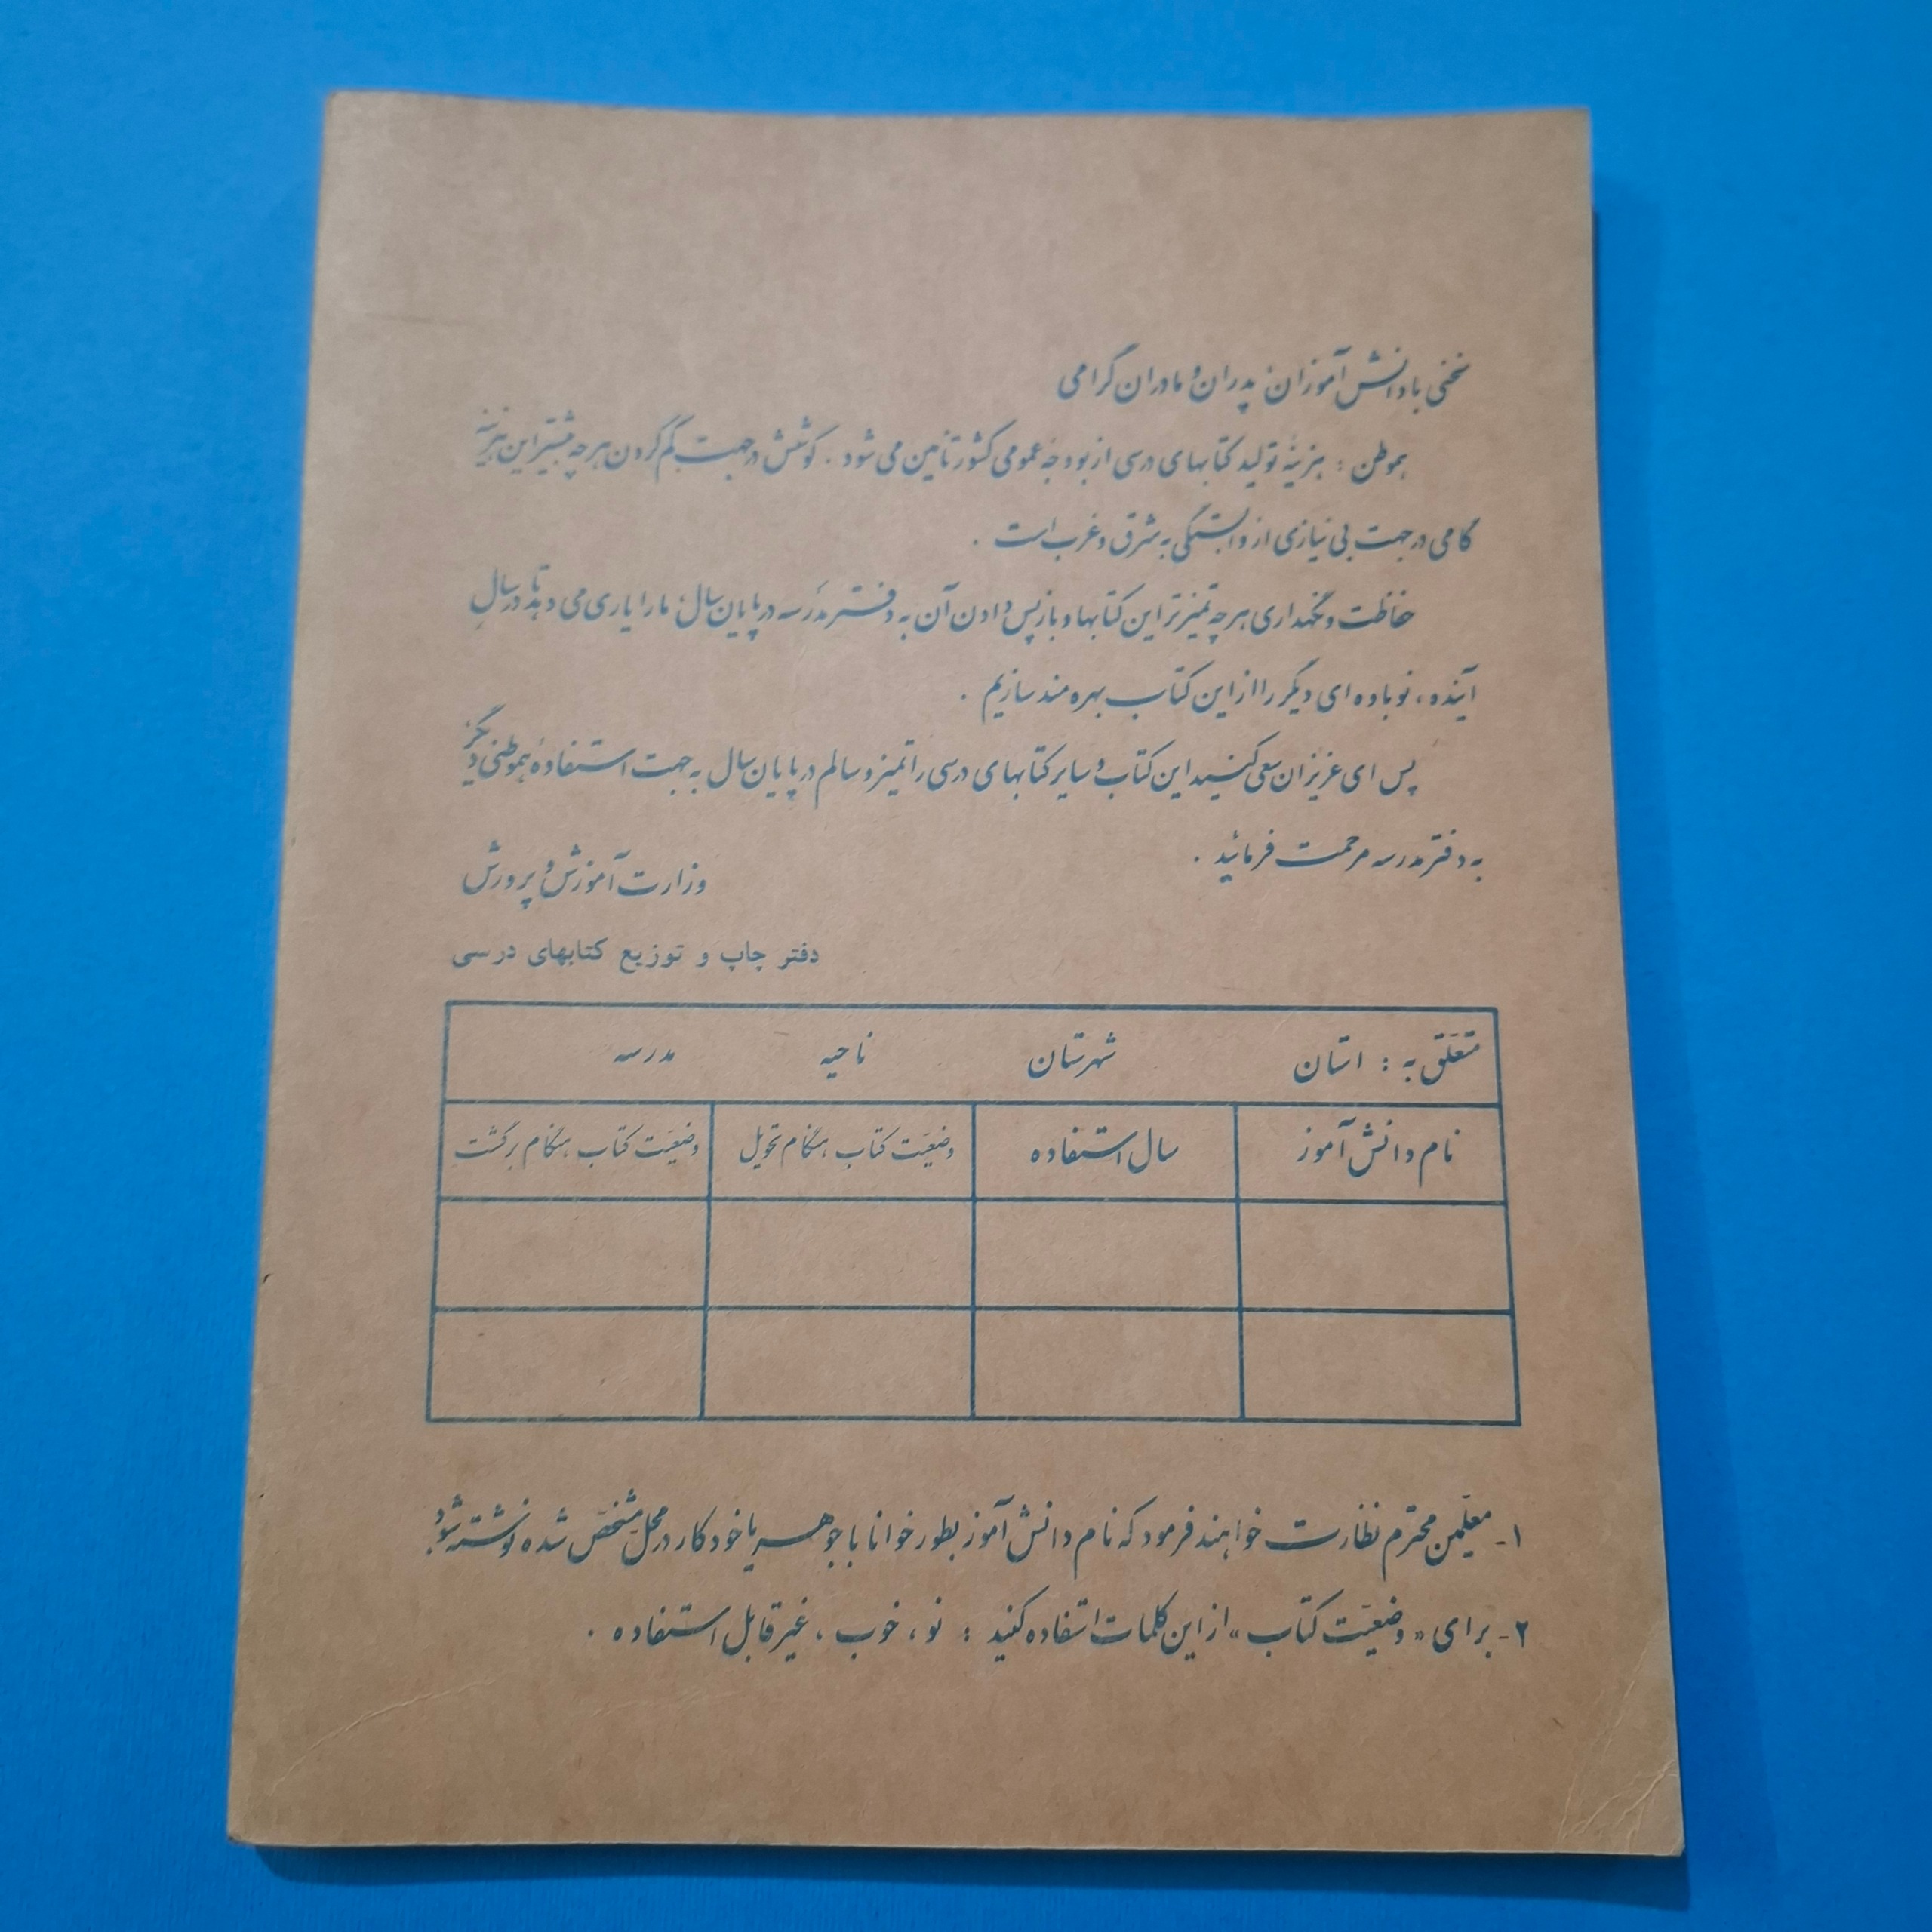 سخنی با دانش‌آموزان، پدران و مادران گرامی
هموطن : هزینهٔ تولید کتابهای درسی از بودجهٔ عمومی کشور تأمین می‌شود . کوشش در جهت کم کردن هرچه بیشتر این هزینه
گامی در جهت بی‌نیازی از وابستگی به شرق و غرب است .
حفاظت و نگهداری هرچه تمیزتر این کتابها و باز پس دادن آن به دفتر مدرسه در پایان سال، ما را یاری می‌دهد تا در سال
آینده ، نوباوه‌ای دیگر را از این کتاب بهره‌مند سازیم .
پس ای عزیزان سعی کنید این کتاب و سایر کتابهای درسی را تمیز و سالم در پایان سال به جهت استفادهٔ هموطنی دیگر
به دفتر مدرسه مرحمت فرمائید .
وزارت آموزش و پرورش
دفتر چاپ و توزیع کتابهای درسی
متعلّق به : استان شهرستان ناحیه مدرسه
نام دانش‌آموز سال استفاده وضعیّت کتاب هنگام تحویل وضعیّت کتاب هنگام برگشت
۱- معلّمین محترم نظارت خواهند فرمود که نام دانش‌آموز بطور خوانا با جوهر یا خودکار در محل مشخّص شده نوشته شود.
۲- برای «وضعیّت کتاب» از این کلمات استفاده کنید : نو ، خوب ، غیر قابل استفاده .